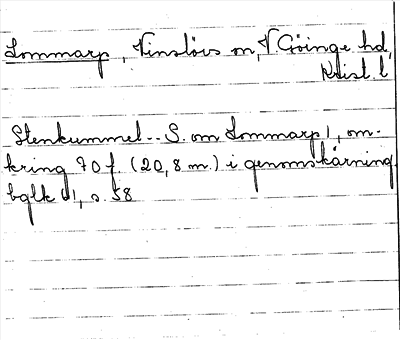 Sommarp, Vinslövs sn, V Göinge hd,
Krist. l
Stenkummel -- S. om Sommarp, om-
kring 70 f. (20,8 m.) i genomskärning
s. 58